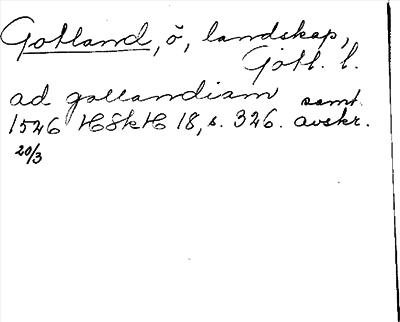 Gotland, ö, landskap,
Gotl. l.
ad gollandiam samt.
1526 HSkH 18, s. 326. avskr.
20/3